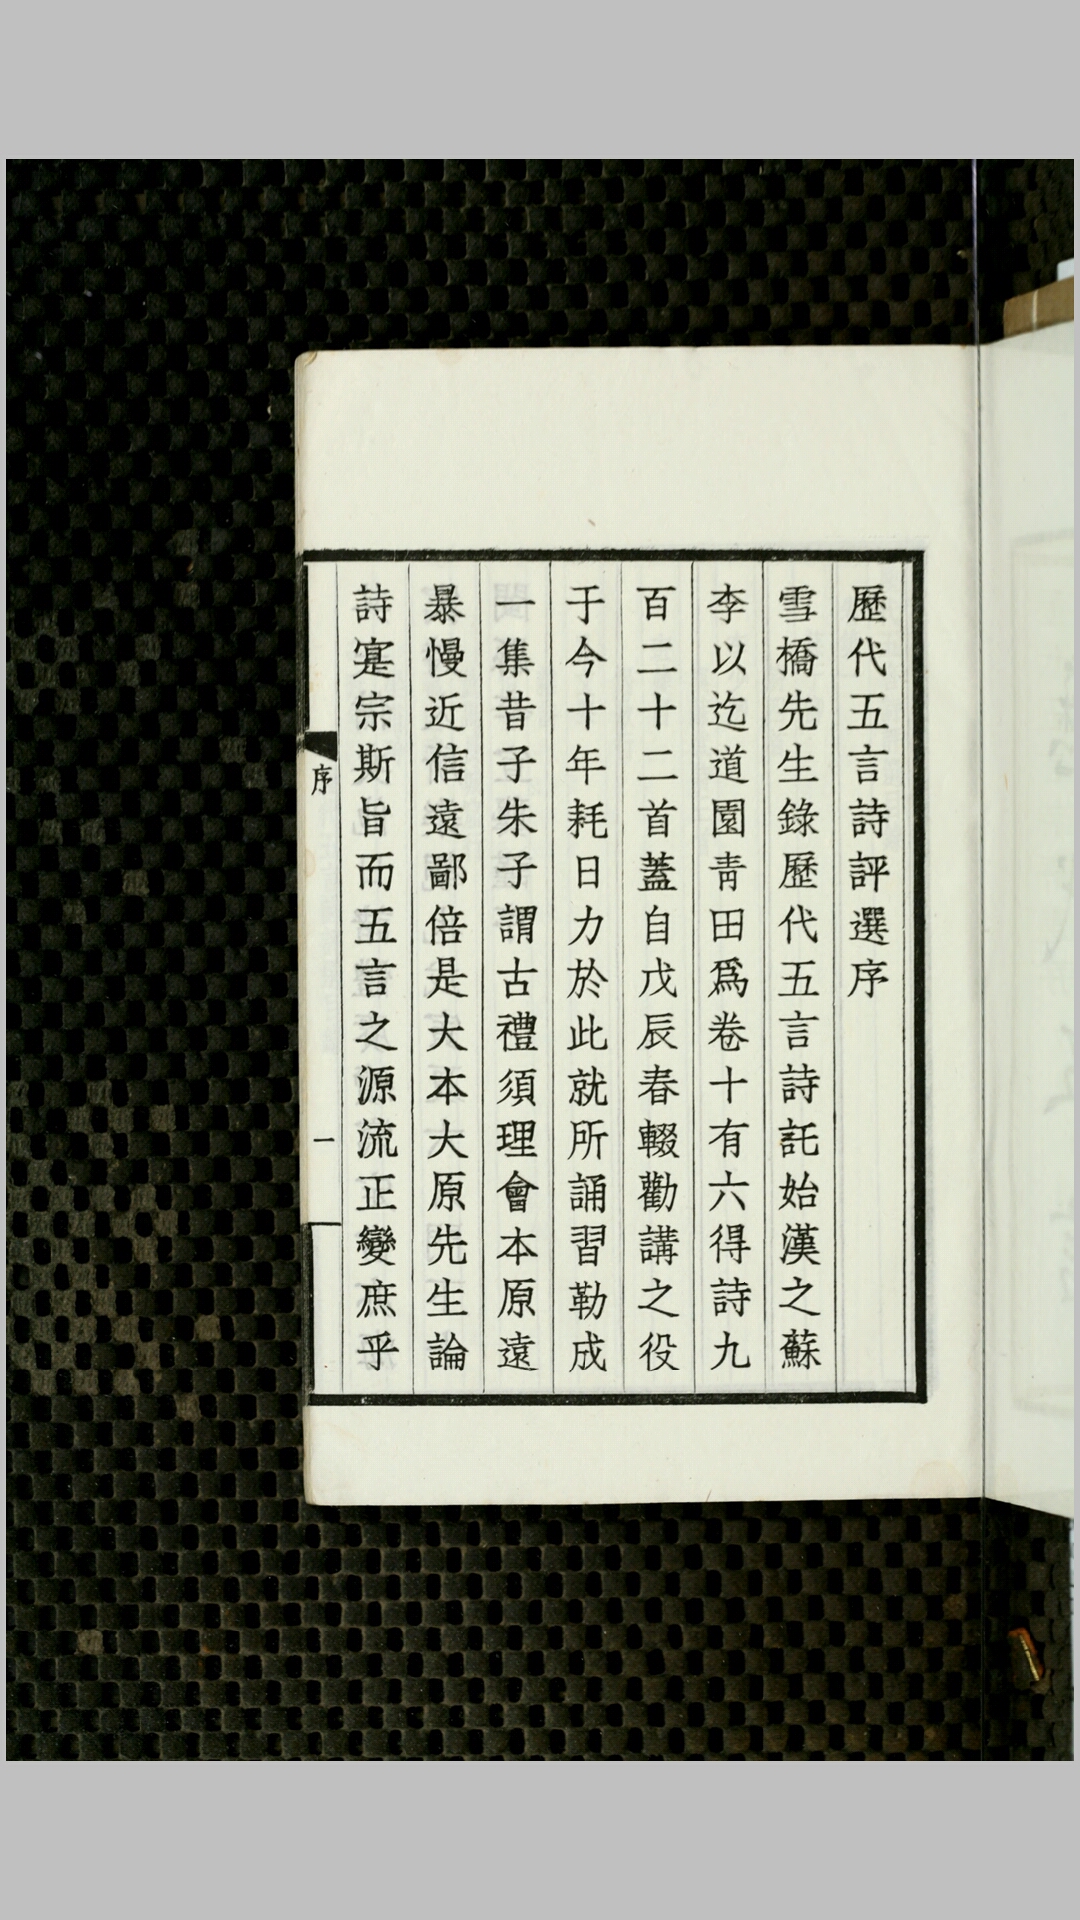 歷代五言詩評選序
雪橋先生錄歷代五言詩託始漢之蘇
李以迄道園靑田爲卷十有六得詩九
百二十二首蓋自戊辰春輟勸講之役
于今十年耗日力於此就所誦習勒成
一集昔子朱子謂古禮須理會本原遠
暴慢近信遠鄙倍是大本大原先生論
詩寔宗斯旨而五言之源流正變庶乎
序
一